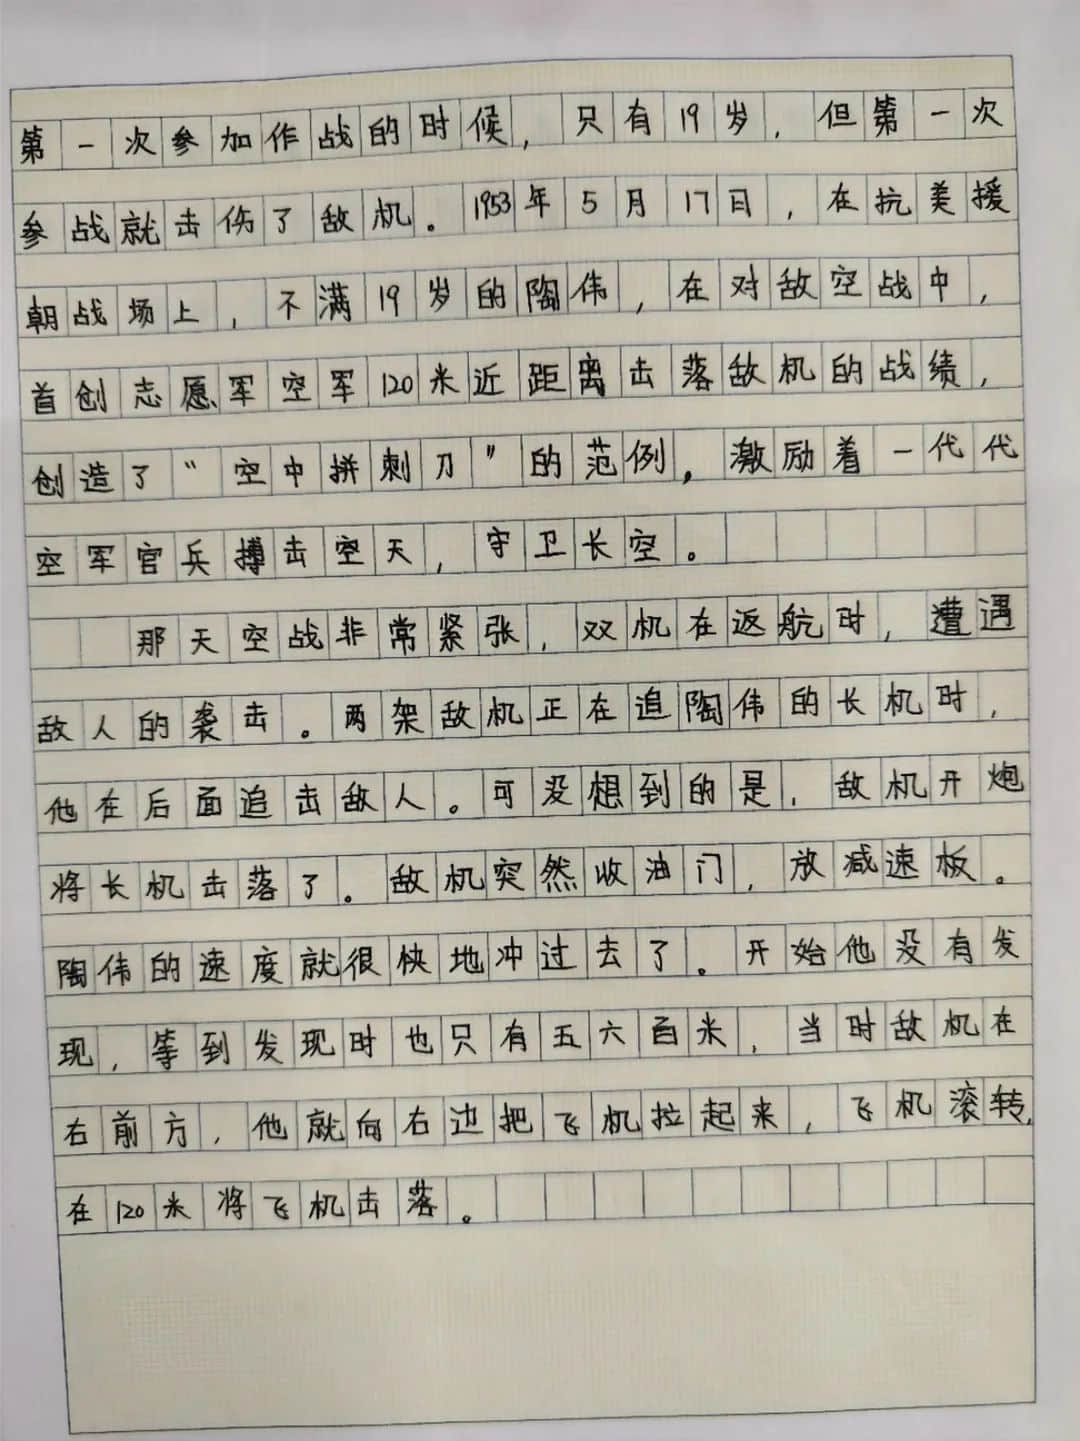 第一次参加作战的时候，只有19岁，但第一次
参战就击伤了敌机。1953年5月17日，在抗美援
朝战场上，不满19岁的陶伟，在对敌空战中，
首创志愿军空军120米近距离击落敌机的战绩，
创造了“空中拼刺刀”的范例，激励着一代代
空军官兵搏击空天，守卫长空。
那天空战非常紧张，双机在返航时，遭遇
敌人的袭击。两架敌机正在追陶伟的长机时，
他在后面追击敌人。可没想到的是，敌机开炮
将长机击落了。敌机突然收油门，放减速板。
陶伟的速度就很快地冲过去了。开始他没有发
现，等到发现时也只有五六百米，当时敌机在
右前方，他就向右边把飞机拉起来，飞机滚转，
在120米将飞机击落。